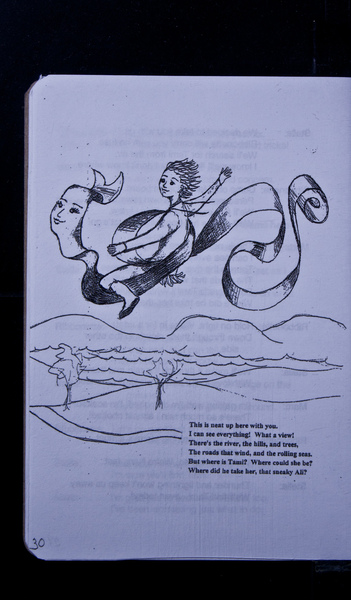 This is neat up here with you.
I can see everything! What a view!
There's the river, the hills, and trees,
The roads that wind, and the rolling seas.
But where is Tami? Where could she be?
Where did he take her, that sneaky Ali?
30